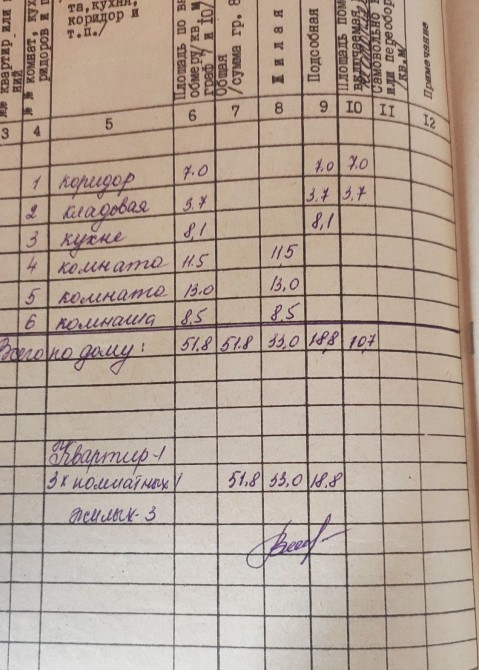 №№ квартир или
ний
№№ комнат, кух
ридоров и п
та, кухня,
коридор и
т.п./
Площадь по вн
обмеру/кв.м
граф 7 и 10/
Общая
/сумма гр. 8
Жилая
Подсобная
Площадь пом
Самовольно
или переобор
кв.м/
Примечание
3 4 5 6 7 8 9 10 11 12
1 коридор 7.0 7.0 7.0
2 кладовая 3.7 3.7 3.7
3 кухне 8,1 8,1
4 комната 11.5 11.5
5 комната 13.0 13,0
6 комната 8,5 8,5
Всего по дому: 51.8 51.8 33,0 18.8 10.7
Квартир-1
3х комнатных 1 51.8 33,0 18.8
жилых-3